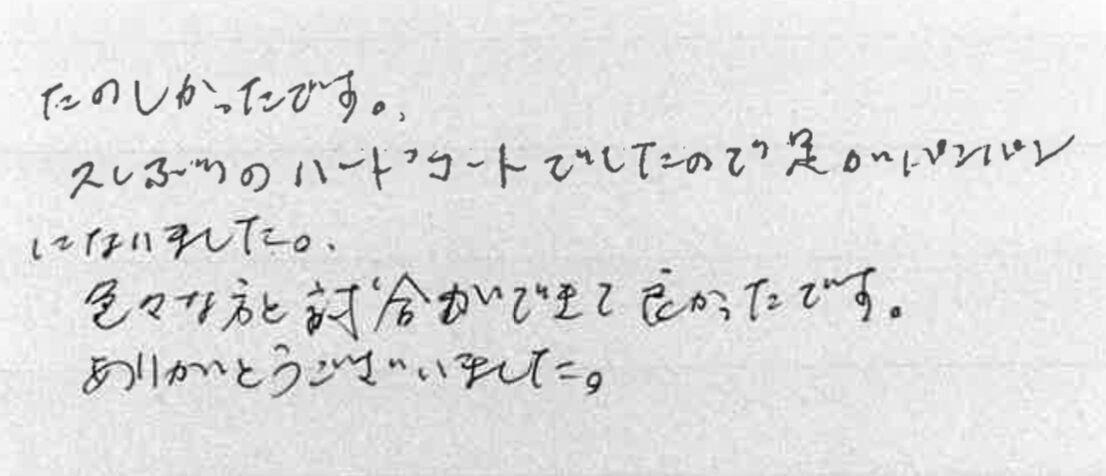 たのしかったです。
久しぶりのハードコートでしたので足がパンパン
になりました。
色々な方と試合ができて良かったです。
ありがとうございました。